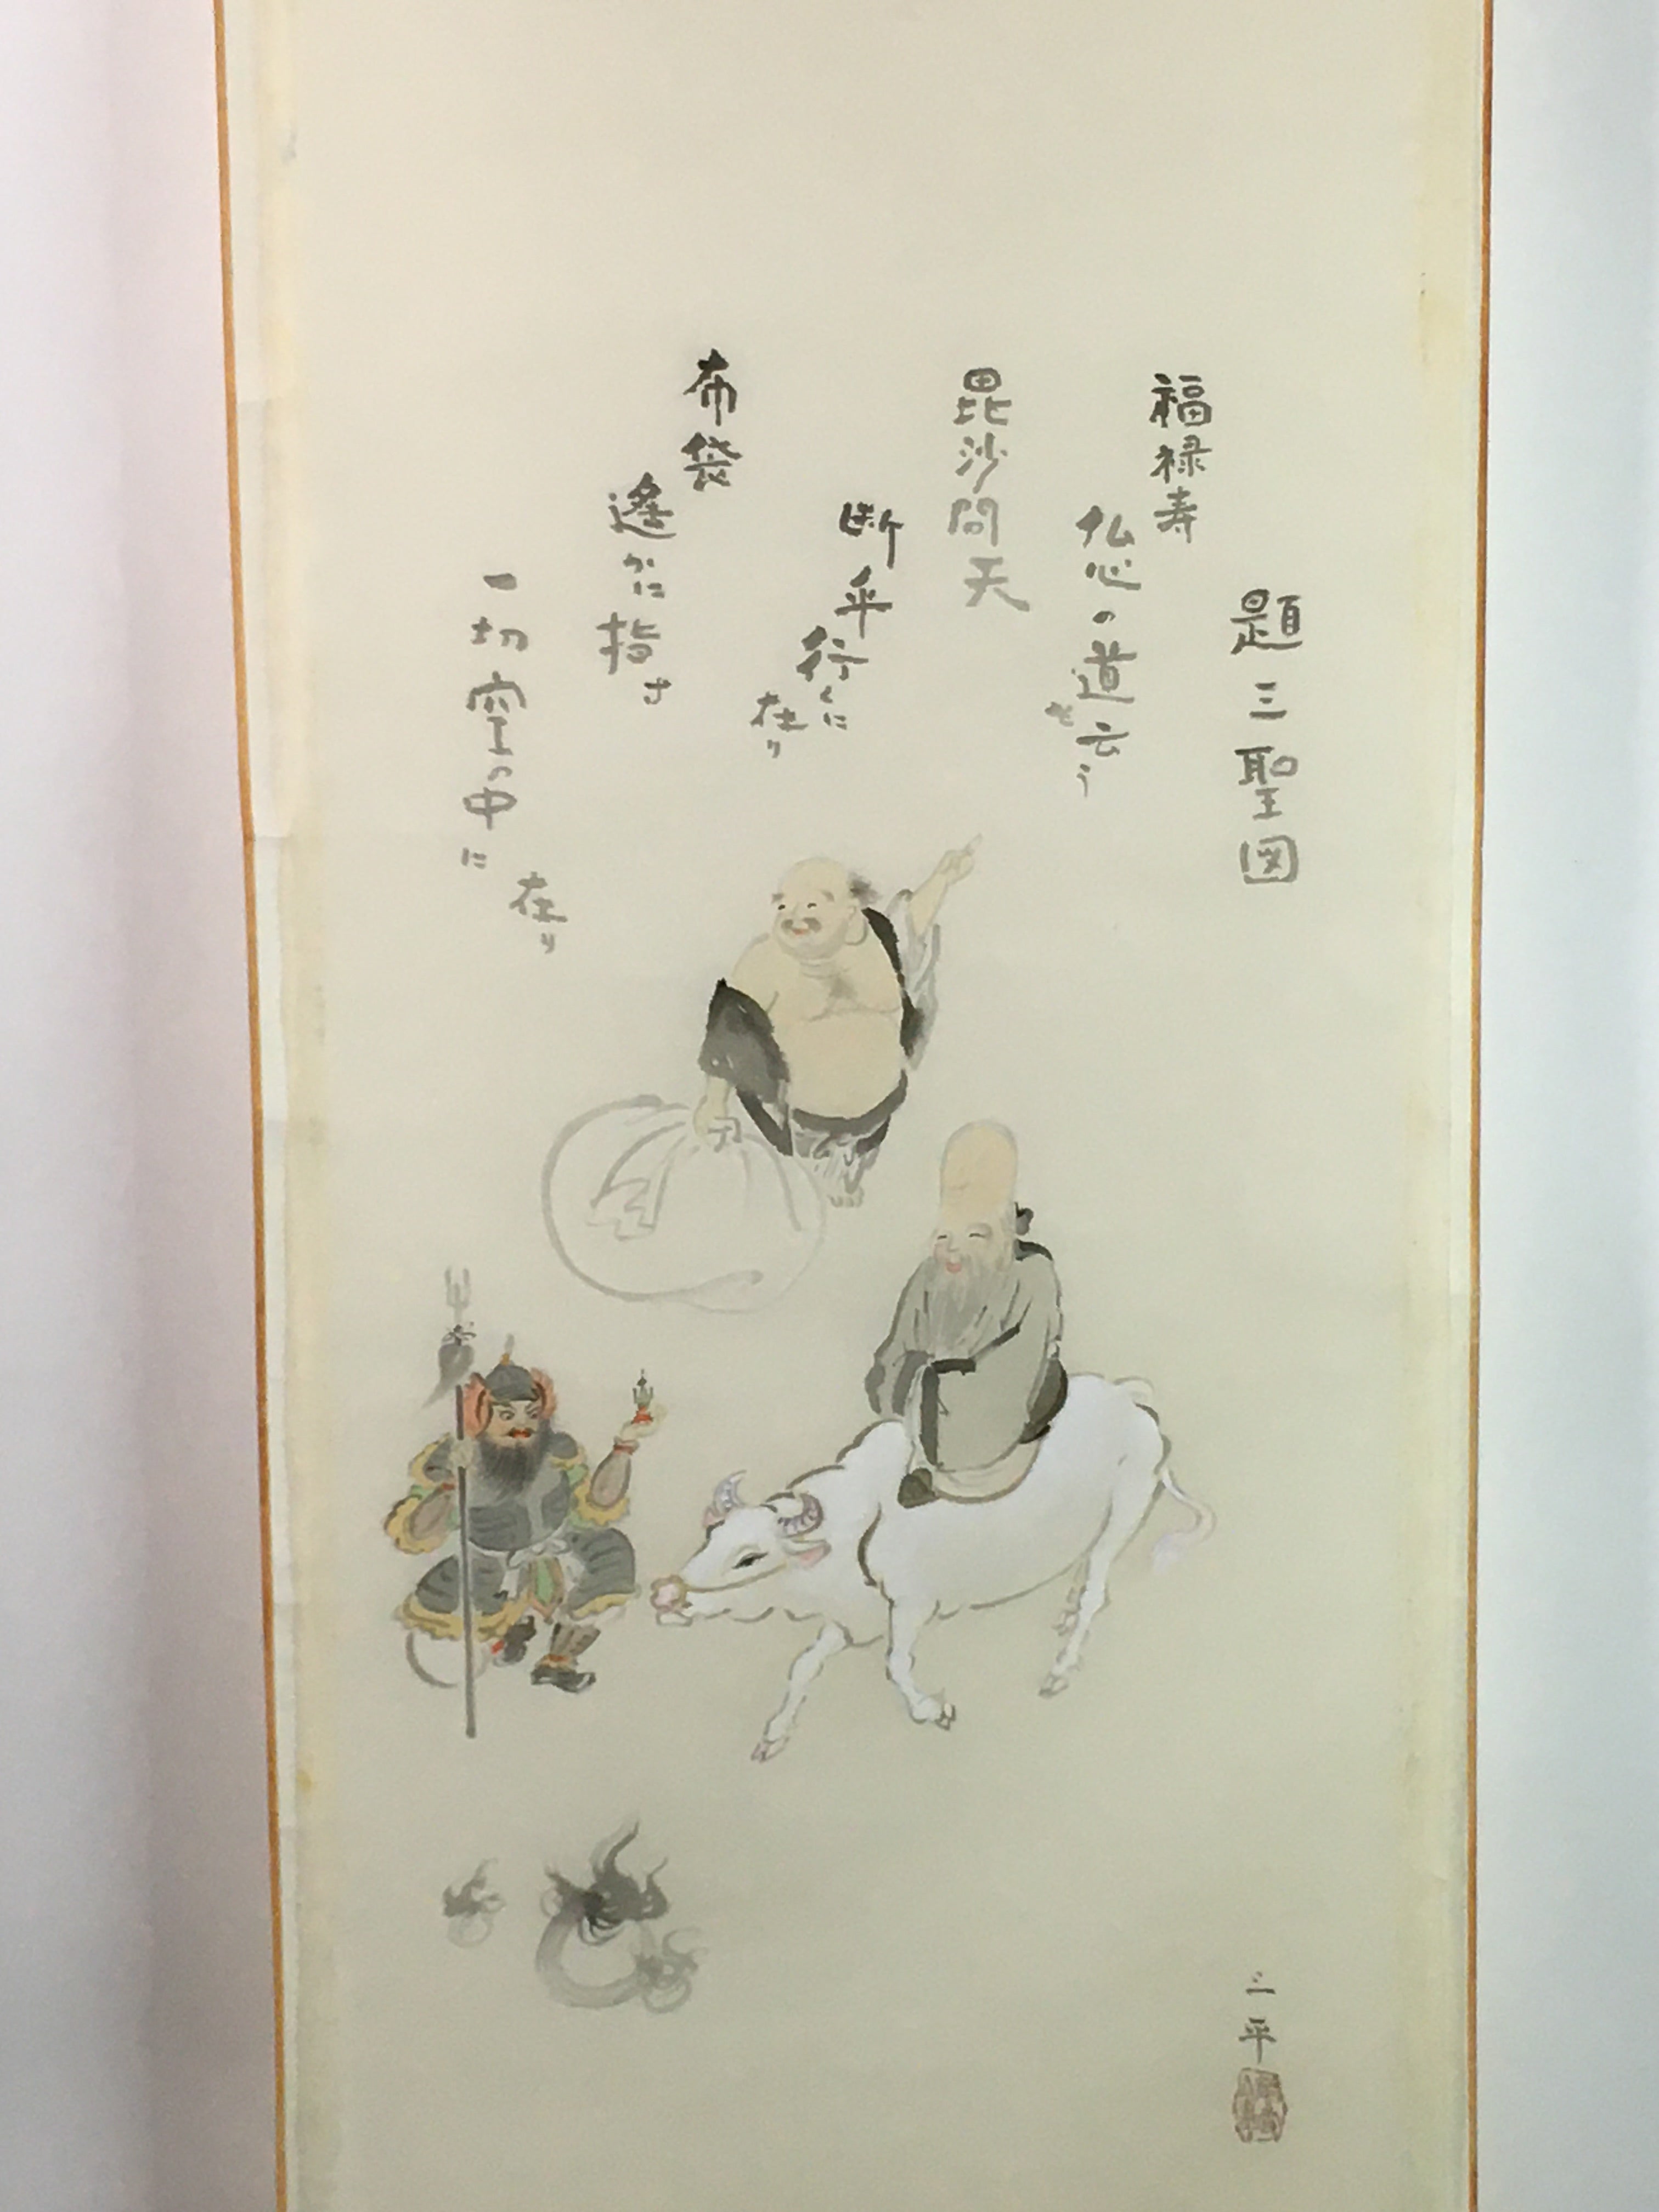 題三聖図
福禄寿
仏心の道を云う
毘沙問天
断乎行くに
在り
布袋
遙かに指す
一切空の中に
在り
三平